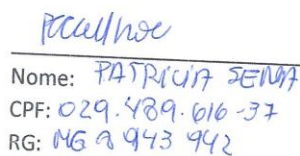 Nome: PATRICIA SENNA
CPF: 029.489.616-37
RG: MG 8 943 942